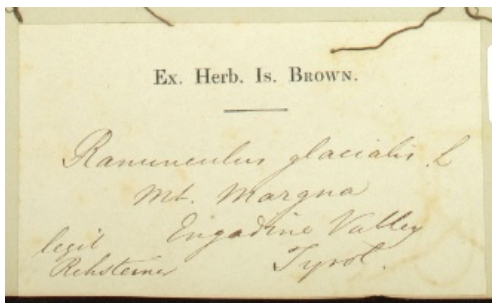 Ex. Herb. Is. Brown.
Ranunculus glacialis. L
Mt. Margna
Engadine Valley
Tyrol.
legit
Rehsteiner